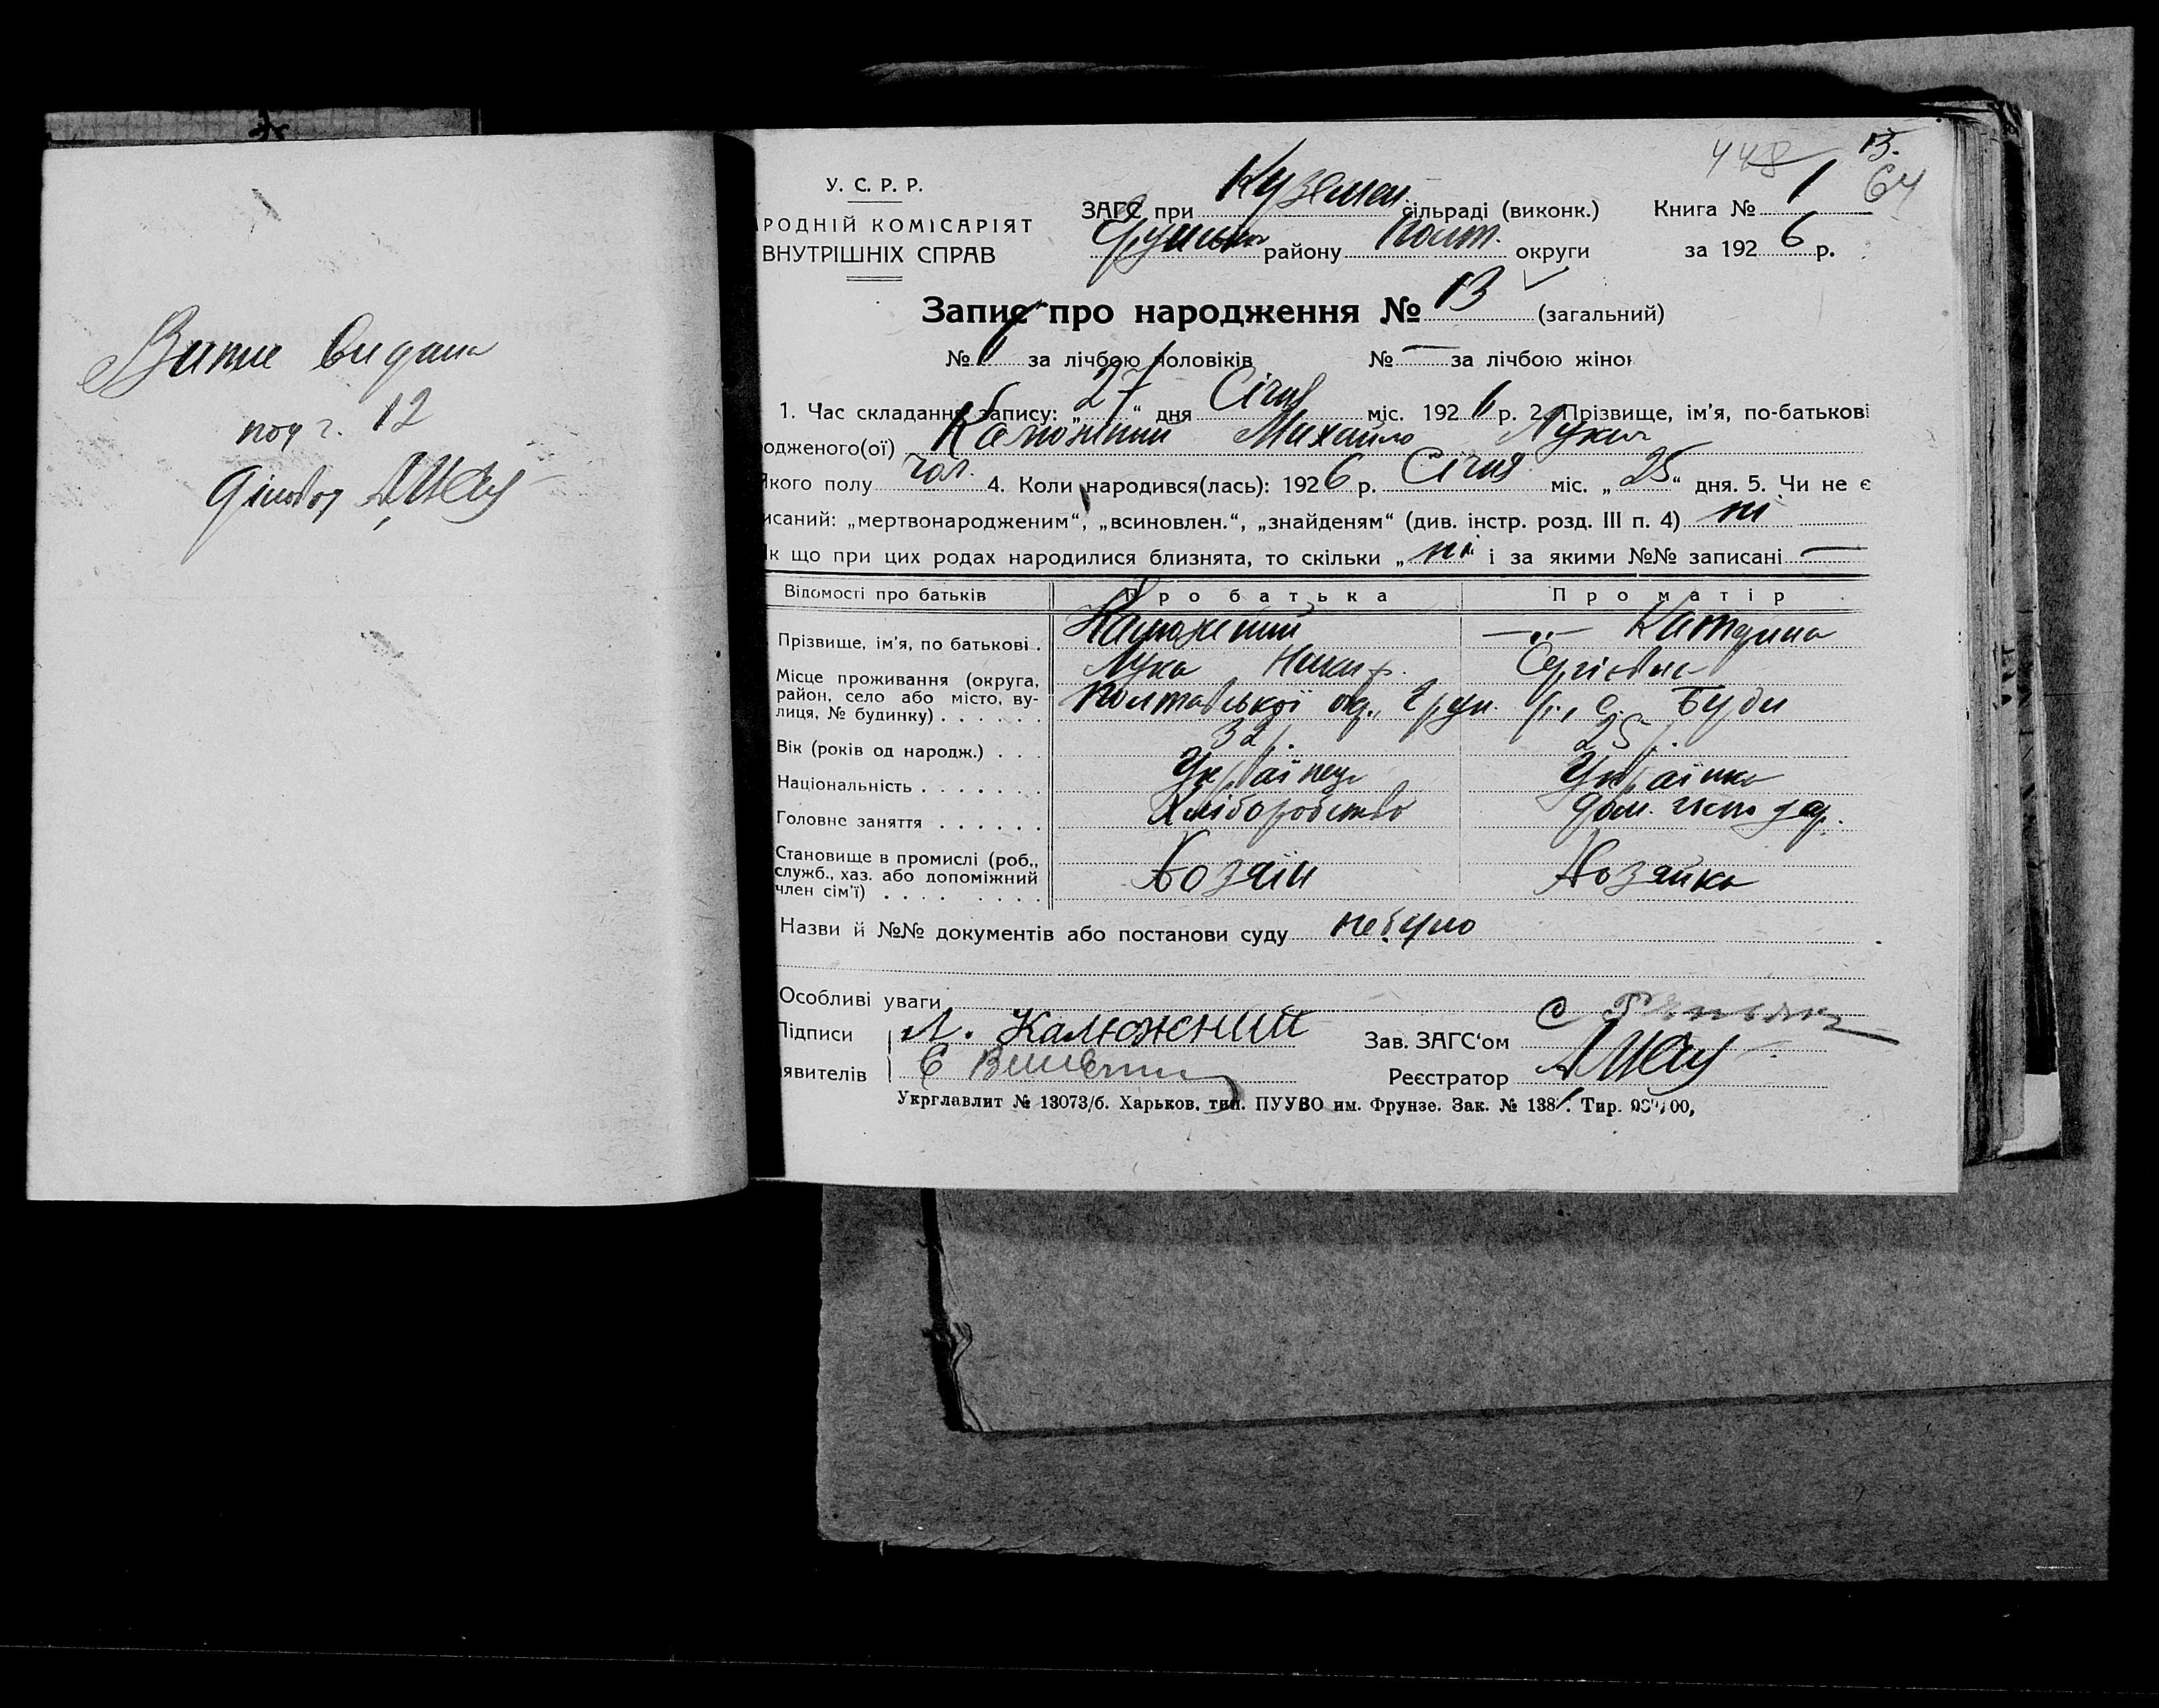 Випис видана
под г. 12
Діловод
448 13.
64
У. С. Р. Р.
РОДНІЙ КОМІСАРІЯТ
ВНУТРІШНІХ СПРАВ
ЗАГС при Куземен. сільраді (виконк.) Книга № 1
Грунськ району Полт. округи за 1926 р.
Запис про народження № 13 (загальний)
№ за лічбою чоловіків № — за лічбою жінок
1. Час складання запису: „27“ дня Січня міс. 1926 р. 2. Прізвище, ім'я, по-батькові
одженого(ої) Калюжний Михайло Лукич
Якого полу чол. 4. Коли народився(лась): 1926 р. Січня міс. „25“ дня. 5. Чи не є
исаний: „мертвонародженим“, „всиновлен.“, „знайденям“ (див. інстр. розд. III п. 4) ні
Як що при цих родах народилися близнята, то скільки „ ні і за якими №№ записані —
Відомості про батьків Про батька Про матір
Прізвище, ім'я, по батькові . Калюжний —„— Катерина
Лука Сергієвна
Місце проживання (округа, район, село або місто, вулиця, № будинку) . . . . . . Полтавської окр., Грун. р., с. Буди
Вік (років од народж.) . . . 32 р. 25 р.
Національність . . . . . . . Українець Українка
Головне заняття . . . . . . Хліборобство дом. господар.
Становище в промислі (роб., служб., хаз. або допоміжний член сім'ї) . . . . . . . . Хозяїн Хозяйка
Назви й №№ документів або постанови суду небуло
Особливі уваги
Підписи Л. Калюжений Зав. ЗАГС'ом
явителів Реєстратор
Укрглавлит № 13073/б. Харьков. тип. ПУУВО им. Фрунзе. Зак. № 138 . Тир.